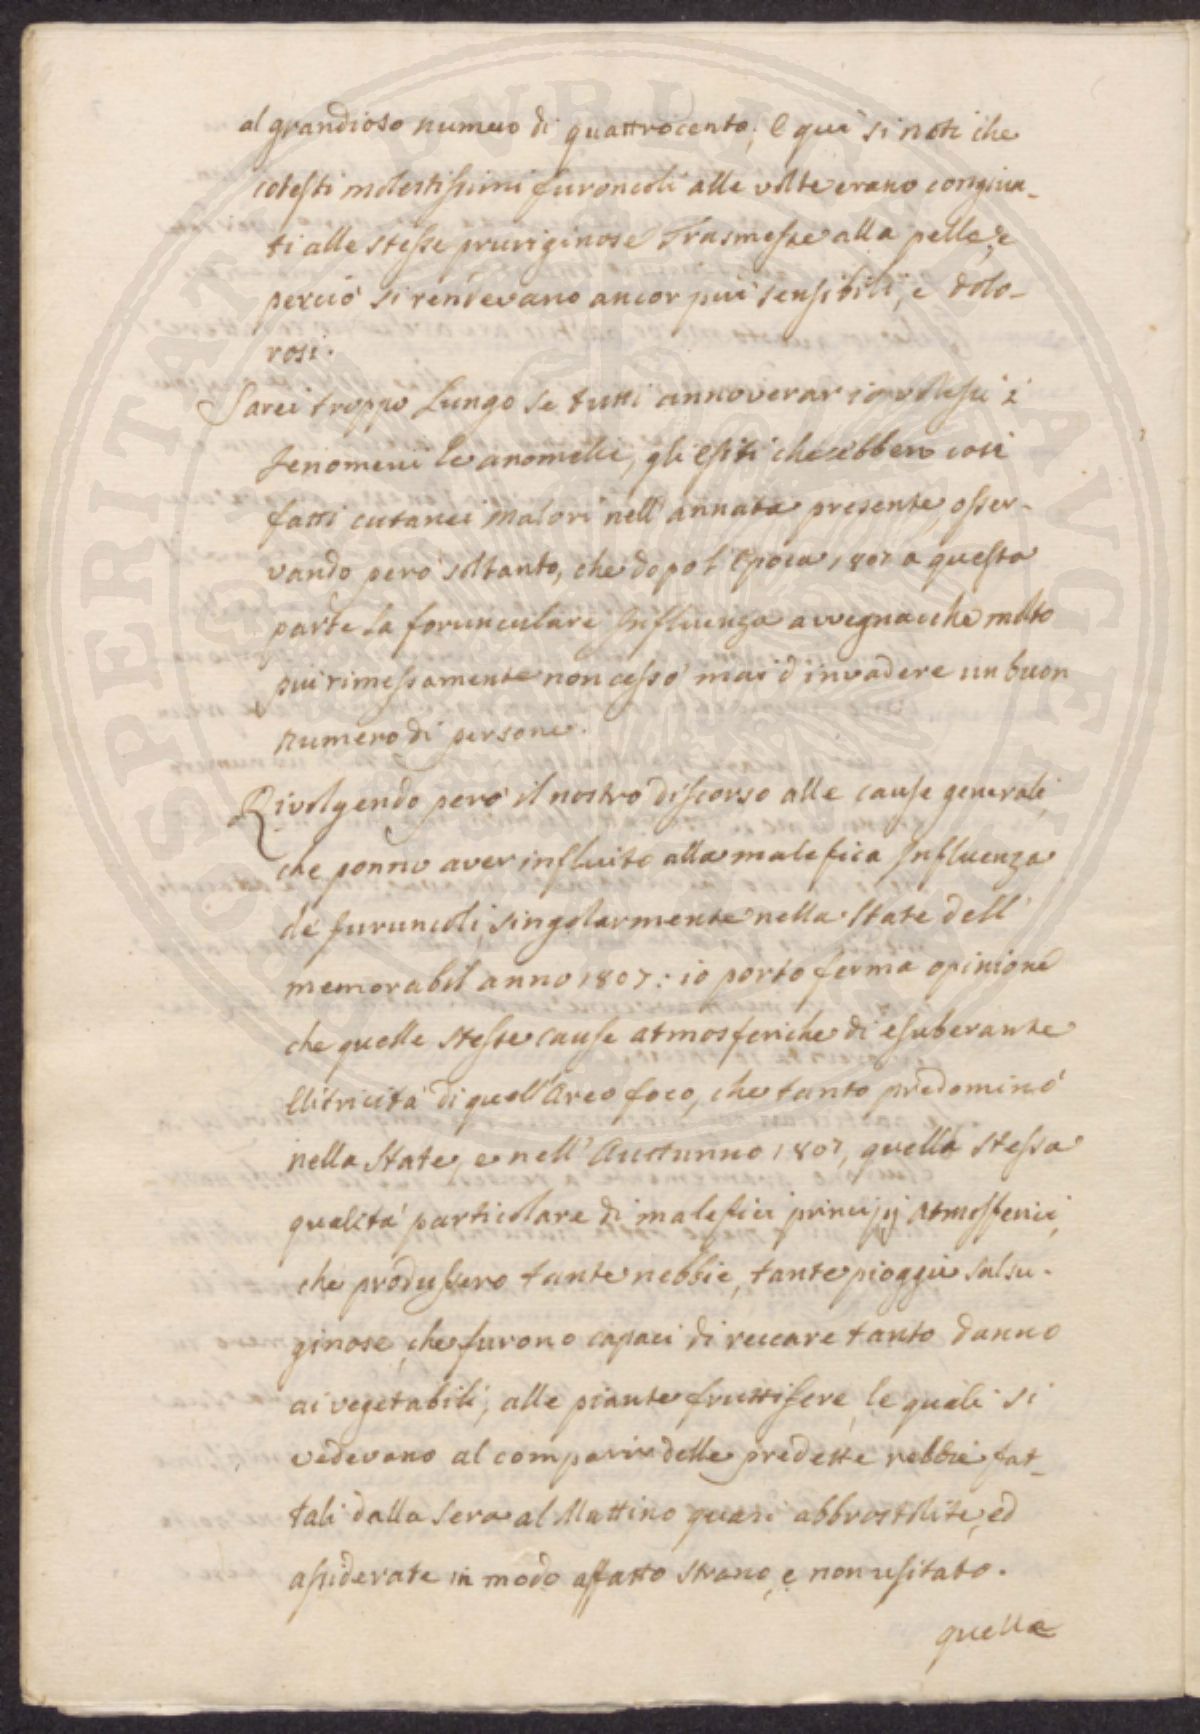 al grandioso numero di quattrocento, E qui si noti che
cotesti molestissimi furoncoli alle volte erano congiun-
ti alle stesse pruriginose Trasmesse alla pelle, e
perciò si rendevano ancor più sensibili, e dolo-
rosi.
Sarei troppo Lungo se tutti annoverar io volessi i
fenomeni le anomalie, gli Esiti che ebbero così
fatti cutanei Malori nell' annata presente, osser-
vando però soltanto, che dopo l'Epoca 1807 a questa
parte la forunculare Influenza avvegnacchè molto
più rimessamente non cessò mai d'invadere un buon
Numero di persone.
Rivolgendo però il nostro discorso alle cause generali,
che ponno aver influito alla malefica Influenza
de' furuncoli, singolarmente nella State dell'
memorabil anno 1807: io porto ferma opinione
che quelle stesse cause atmosferiche di esuberante
Elitricità di quell' Areo foco, che tanto predominò
nella State, e nell' Auttunno 1807, quella stessa
qualità particolare di malefici principj Atmosferici,
che produssero tante nebbie, tante pioggie salsu-
ginose, che furono capaci di reccare tanto danno
ai vegetabili, alle piante fruttifere, le quali si
vedevano al comparir delle predette nebbie fat-
tali dalla sera al Mattino quasi abbrostolite, ed
assiderate in modo affatto strano, e non usitato.
quella
SOSPERITATI PVBLICAE AVGENDAE